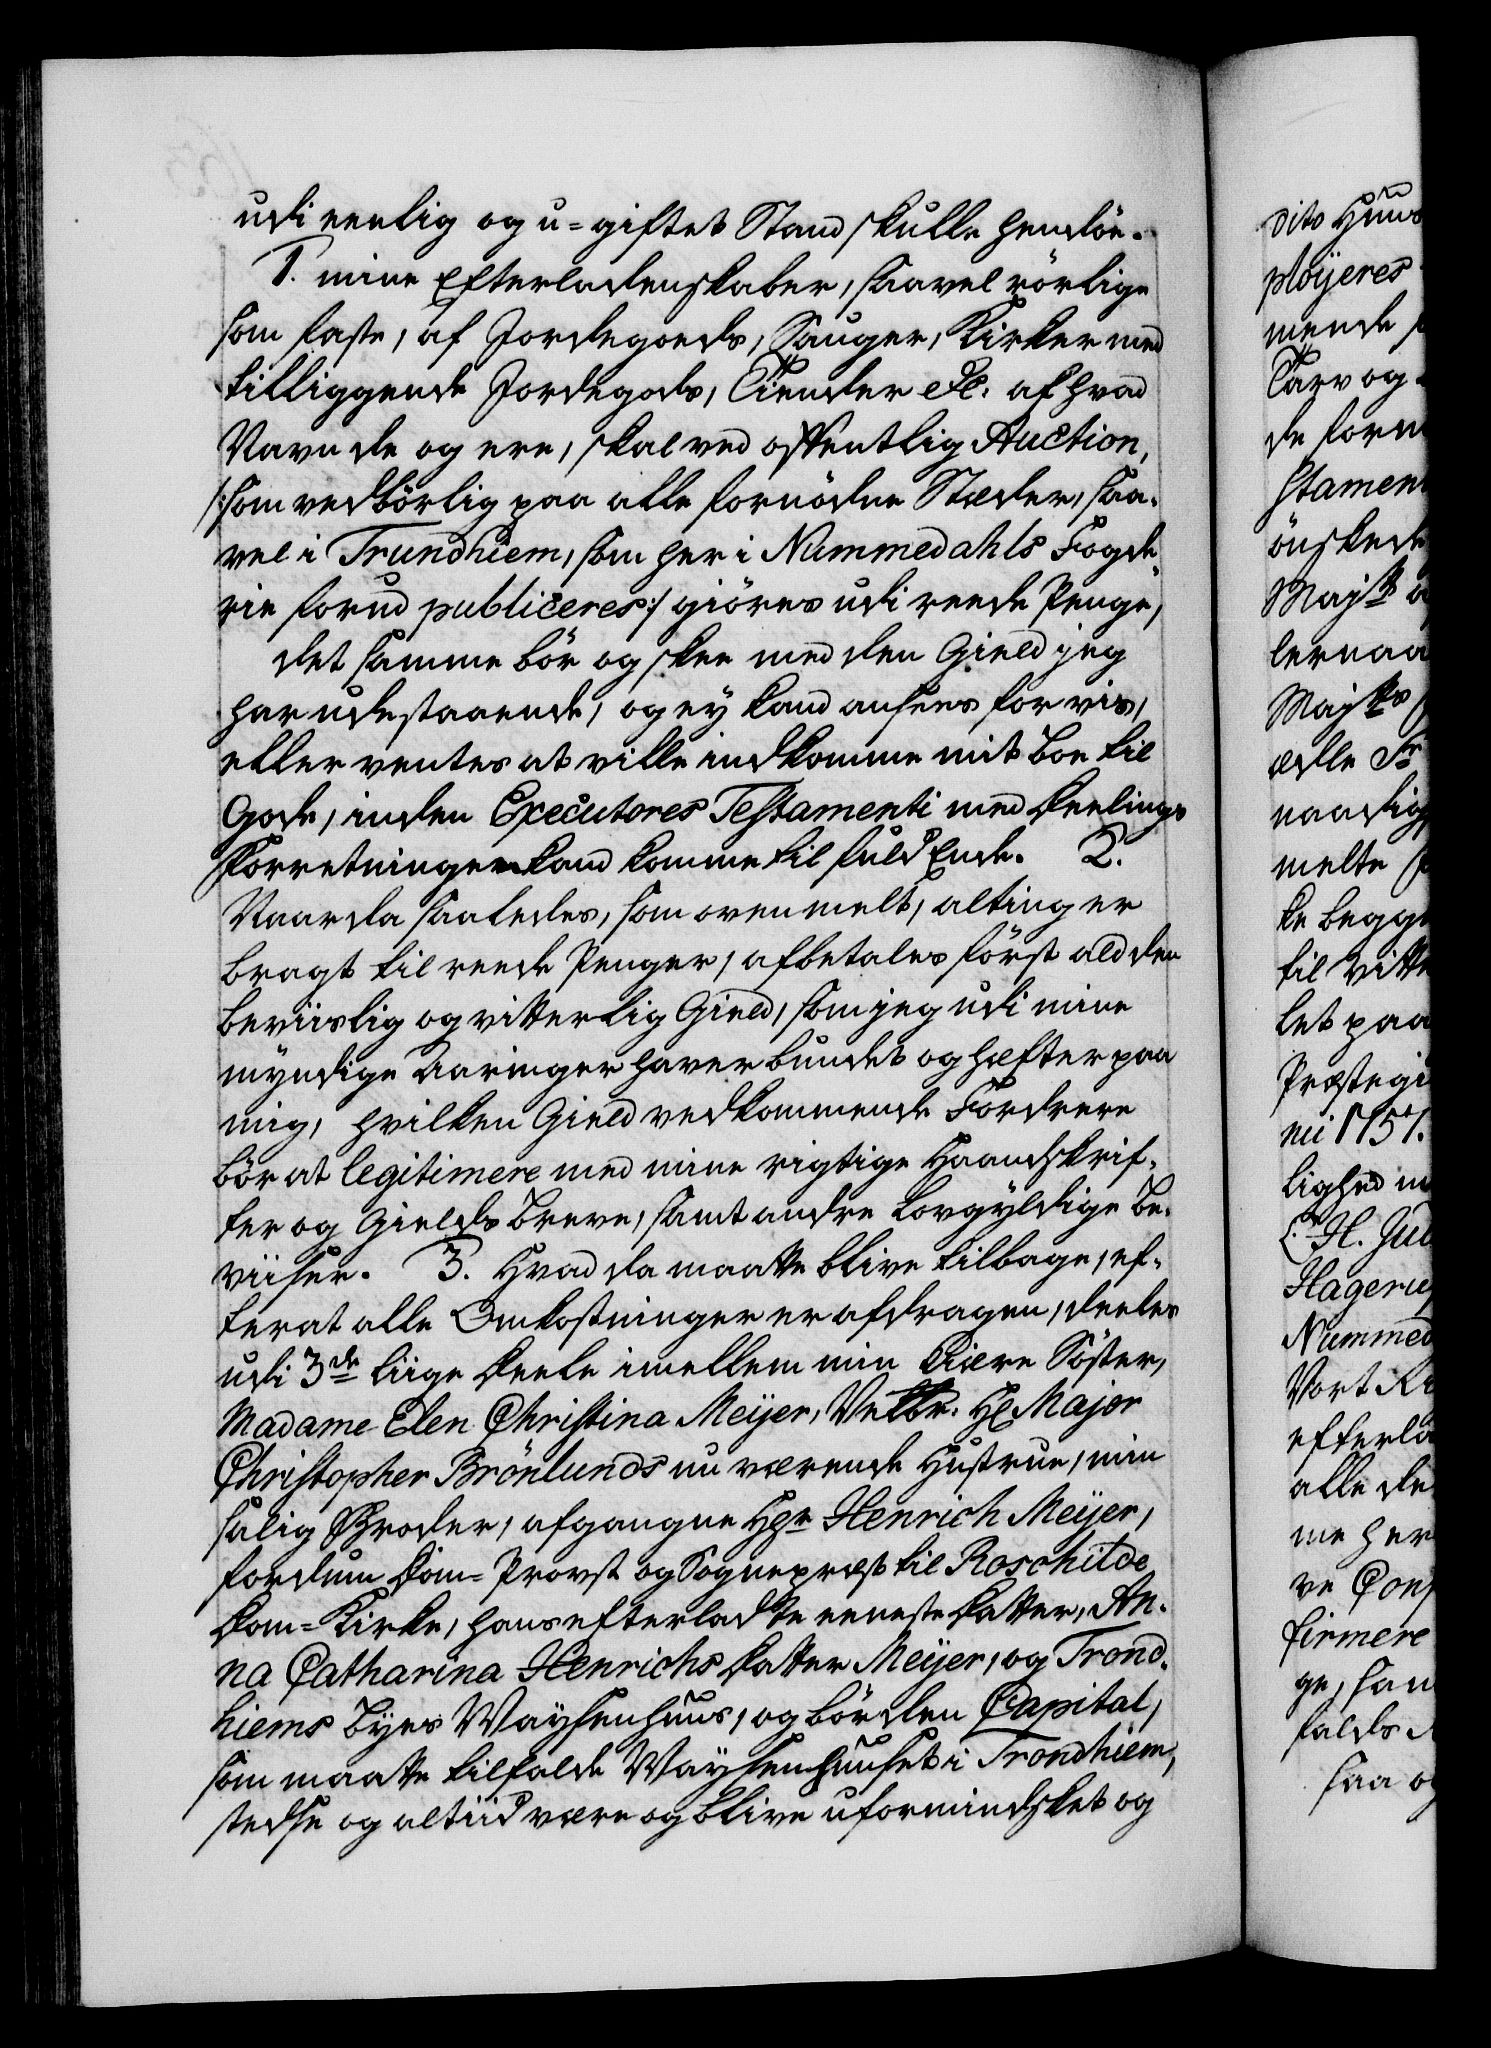 udi eenlig og u-giftet Stand skulle hendöe.
1. mine Efterladenskaber, saavel rörlige
som faste, af Jordegoeds, Sauger, Kirker med
tilliggende Jordegods, Tiender &c: af hvad
Navn de og ere, skal ved offentlig Auction,
/:som vedbörlig paa alle fornödne Stæder, saa-
vel i Trundhiem, som her i Nummedahls Fogde-
rie forud publiceres:/ giöres udi reede Penge,
det samme bör og skee med den Gield jeg
har udestaaende, og ey kand ansees for vis,
eller ventes at ville indkomme mit Boe til
Gode, inden Executores Testamenti med Deelings
Forretningen kand komme til fuld Ende. 2.
Naar da saaledes, som ovenmelt, alting er
bragt til reede Penger, afbetales först ald den
beviislig og vitterlig Gield, som jeg udi mine
myndige Aaringer haver bundet og hæfter paa
mig, hvilken Gield vedkommende Fordrere
bör at legitimere med mine rigtige Haandskrif-
ter og Gields Breve, samt andre lovgyldige Be-
viiser. 3. Hvad da maatte blive tilbage, ef-
terat alle Omkostninger er afdragen, deeles
udi 3de liige Deele imellem min kiære Söster,
Madame Elen Christina Meijer, Velbr. Hr Major
Christopher Brönlunds nu værende Hustrue, min
salig Broder, afgangne Hgr Henrich Meijer,
fordum Dom-Provst og Sognepræst til Roschilde
Dom-Kirke, hans efterladte eeneste Datter, An-
na Catharina Henrichs Datter Meijer, og Trond-
hiems Byes Waysenhuus, og bör den Capital,
som maatte tilfalde Waysenhuuset i Trondhiem,
stedse og altiid være og blive uformindsket og
dito Huus
ployeres
mende
Tarv og
de forn
stament
önskede
Majts
lernaa
Majts
ædle
naadig
melte
de begge
til vitte
let paa
Præstegi
ni 1757.
lighed
H. Jud
Hagerup
Nummed
Vort
efterla
alle de
me her
ve Conf
firmere
ge, san
falds
saa og